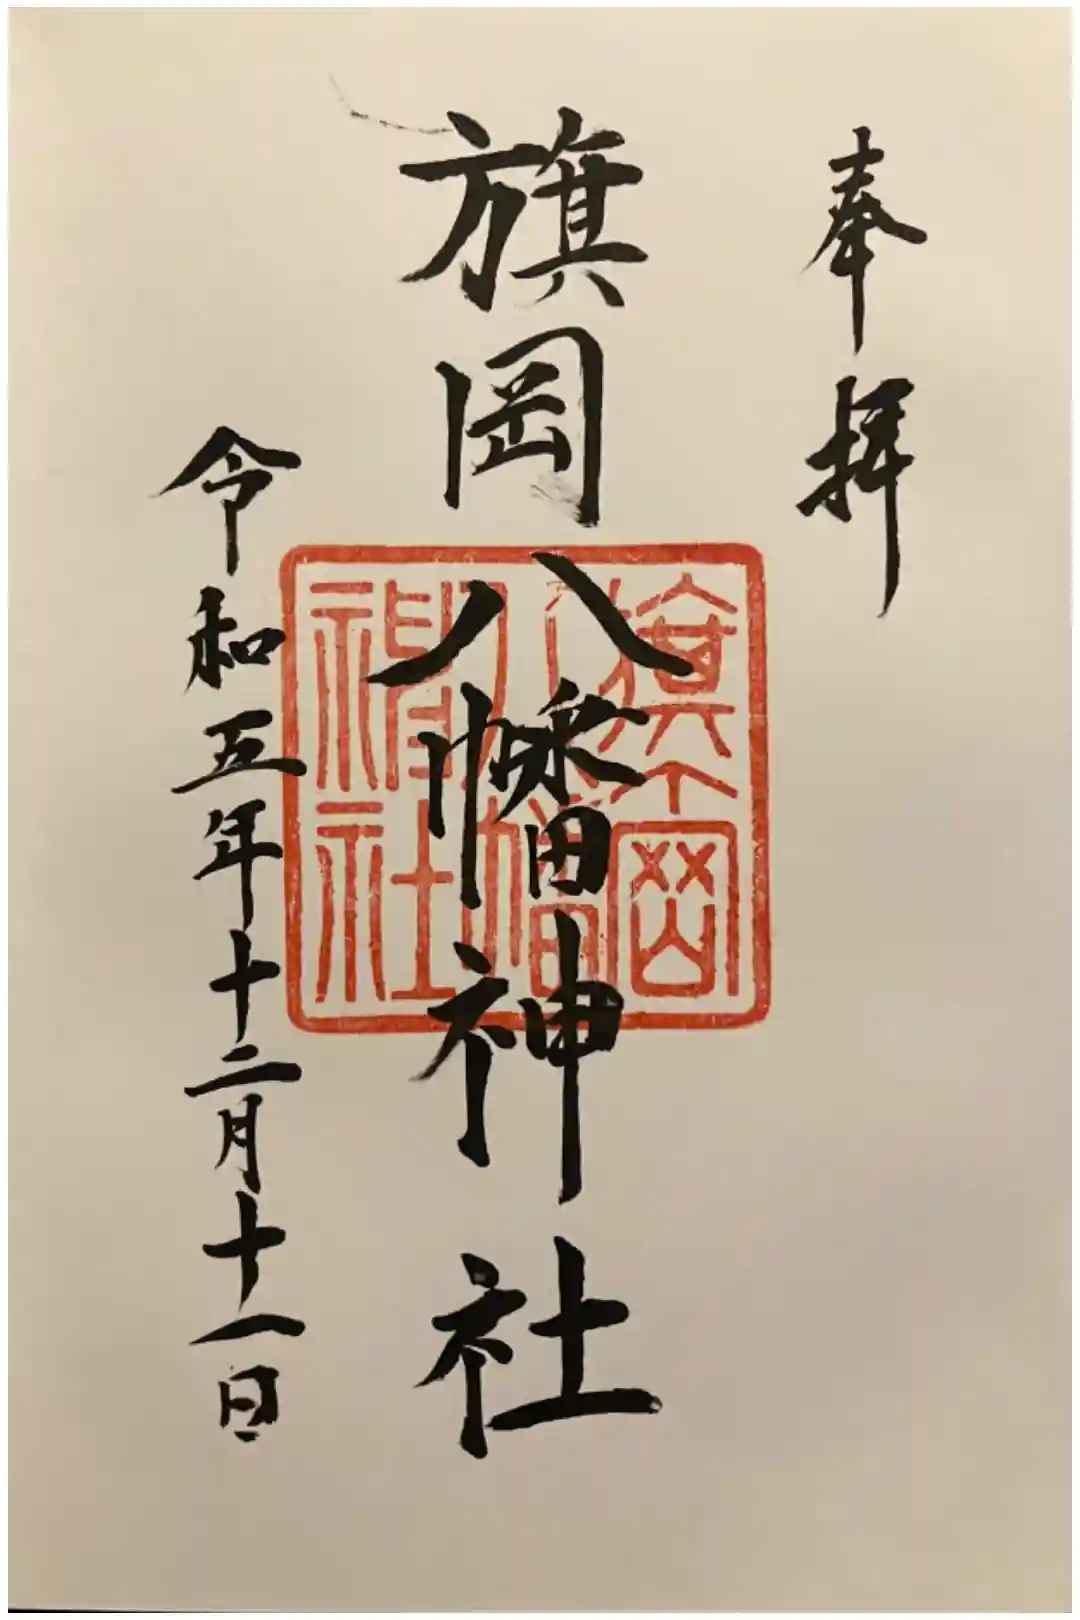 奉拝
旗岡八幡神社
旗岡
八幡
神社
令和五年十二月十一日